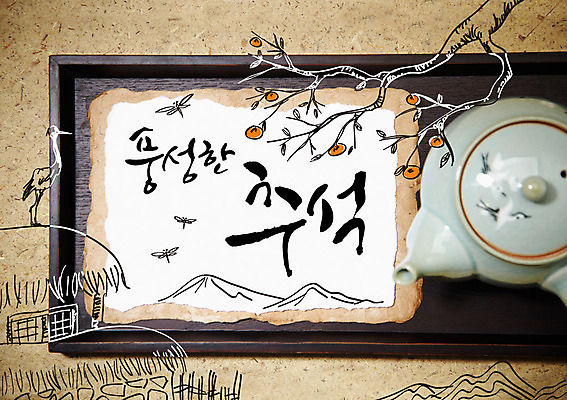 풍성한
추석